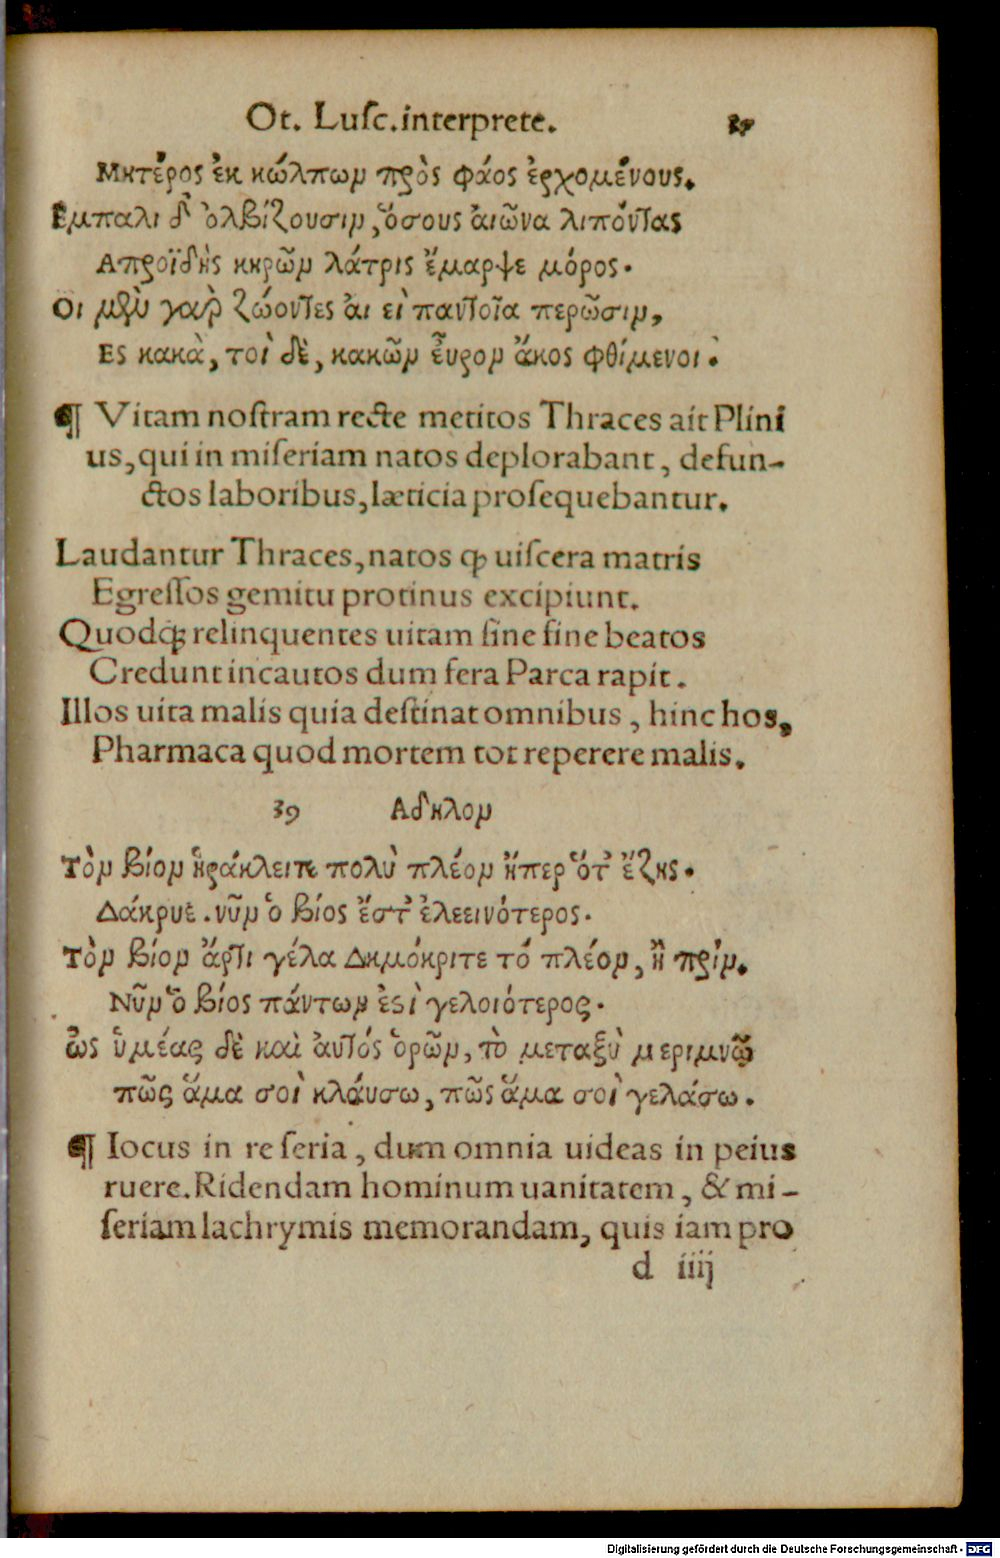 Ot. Luſc. interprete.
Μητέρος ἐκ κώλπων πρὸς φάος ἐρχομένους.
Εμπαλι δ' ὀλβίζουσιν, ὅσους ἀιῶνα λιπόντας
Απροϊδὴς κηρῶν λάτρις ἔμαρψε μόρος.
Οι μὲν γαρ ζώοντες ἀι εὶ παντοῖα περῶσιν,
Ες κακὰ, τοὶ δὲ, κακῶν εὗρον ἄκος φθίμενοι.
¶ Vitam noſtram recte metitos Thraces ait Plini
us, qui in miſeriam natos deplorabant, defun-
ctos laboribus, læticia proſequebantur.
Laudantur Thraces, natos ꝙ uiſcera matris
Egreſſos gemitu protinus excipiunt.
Quodꝗ relinquentes uitam ſine fine beatos
Credunt incautos dum fera Parca rapit.
Illos uita malis quia deſtinat omnibus, hinc hos,
Pharmaca quod mortem tot reperere malis.
39 Αδηλον
Τὸν βίον ἡράκλειτε πολὺ πλέον ἤπερ ὅτ' ἔζης.
Δάκρυε. νῦν ὁ βίος ἔστ' ἐλεεινότερος.
Τὸν βίον ἄρτι γέλα Δημόκριτε τό πλέον, ἢ πρίν.
Νῦν ὁ βίος πάντων ἐϛὶ γελοιότερος.
ὣς ὑμέας δὲ καὶ ἀυτός ὁρῶν, τὸ μεταξὺ μεριμνῶ
πῶς ἅμα σοὶ κλάυσω, πῶς ἅμα σοὶ γελάσω.
¶ Iocus in re ſeria, dum omnia uideas in peius
ruere. Ridendam hominum uanitatem, & mi-
ſeriam lachrymis memorandam, quis iam pro
d iiij
Digitalisierung gefördert durch die Deutsche Forschungsgemeinschaft - DFG